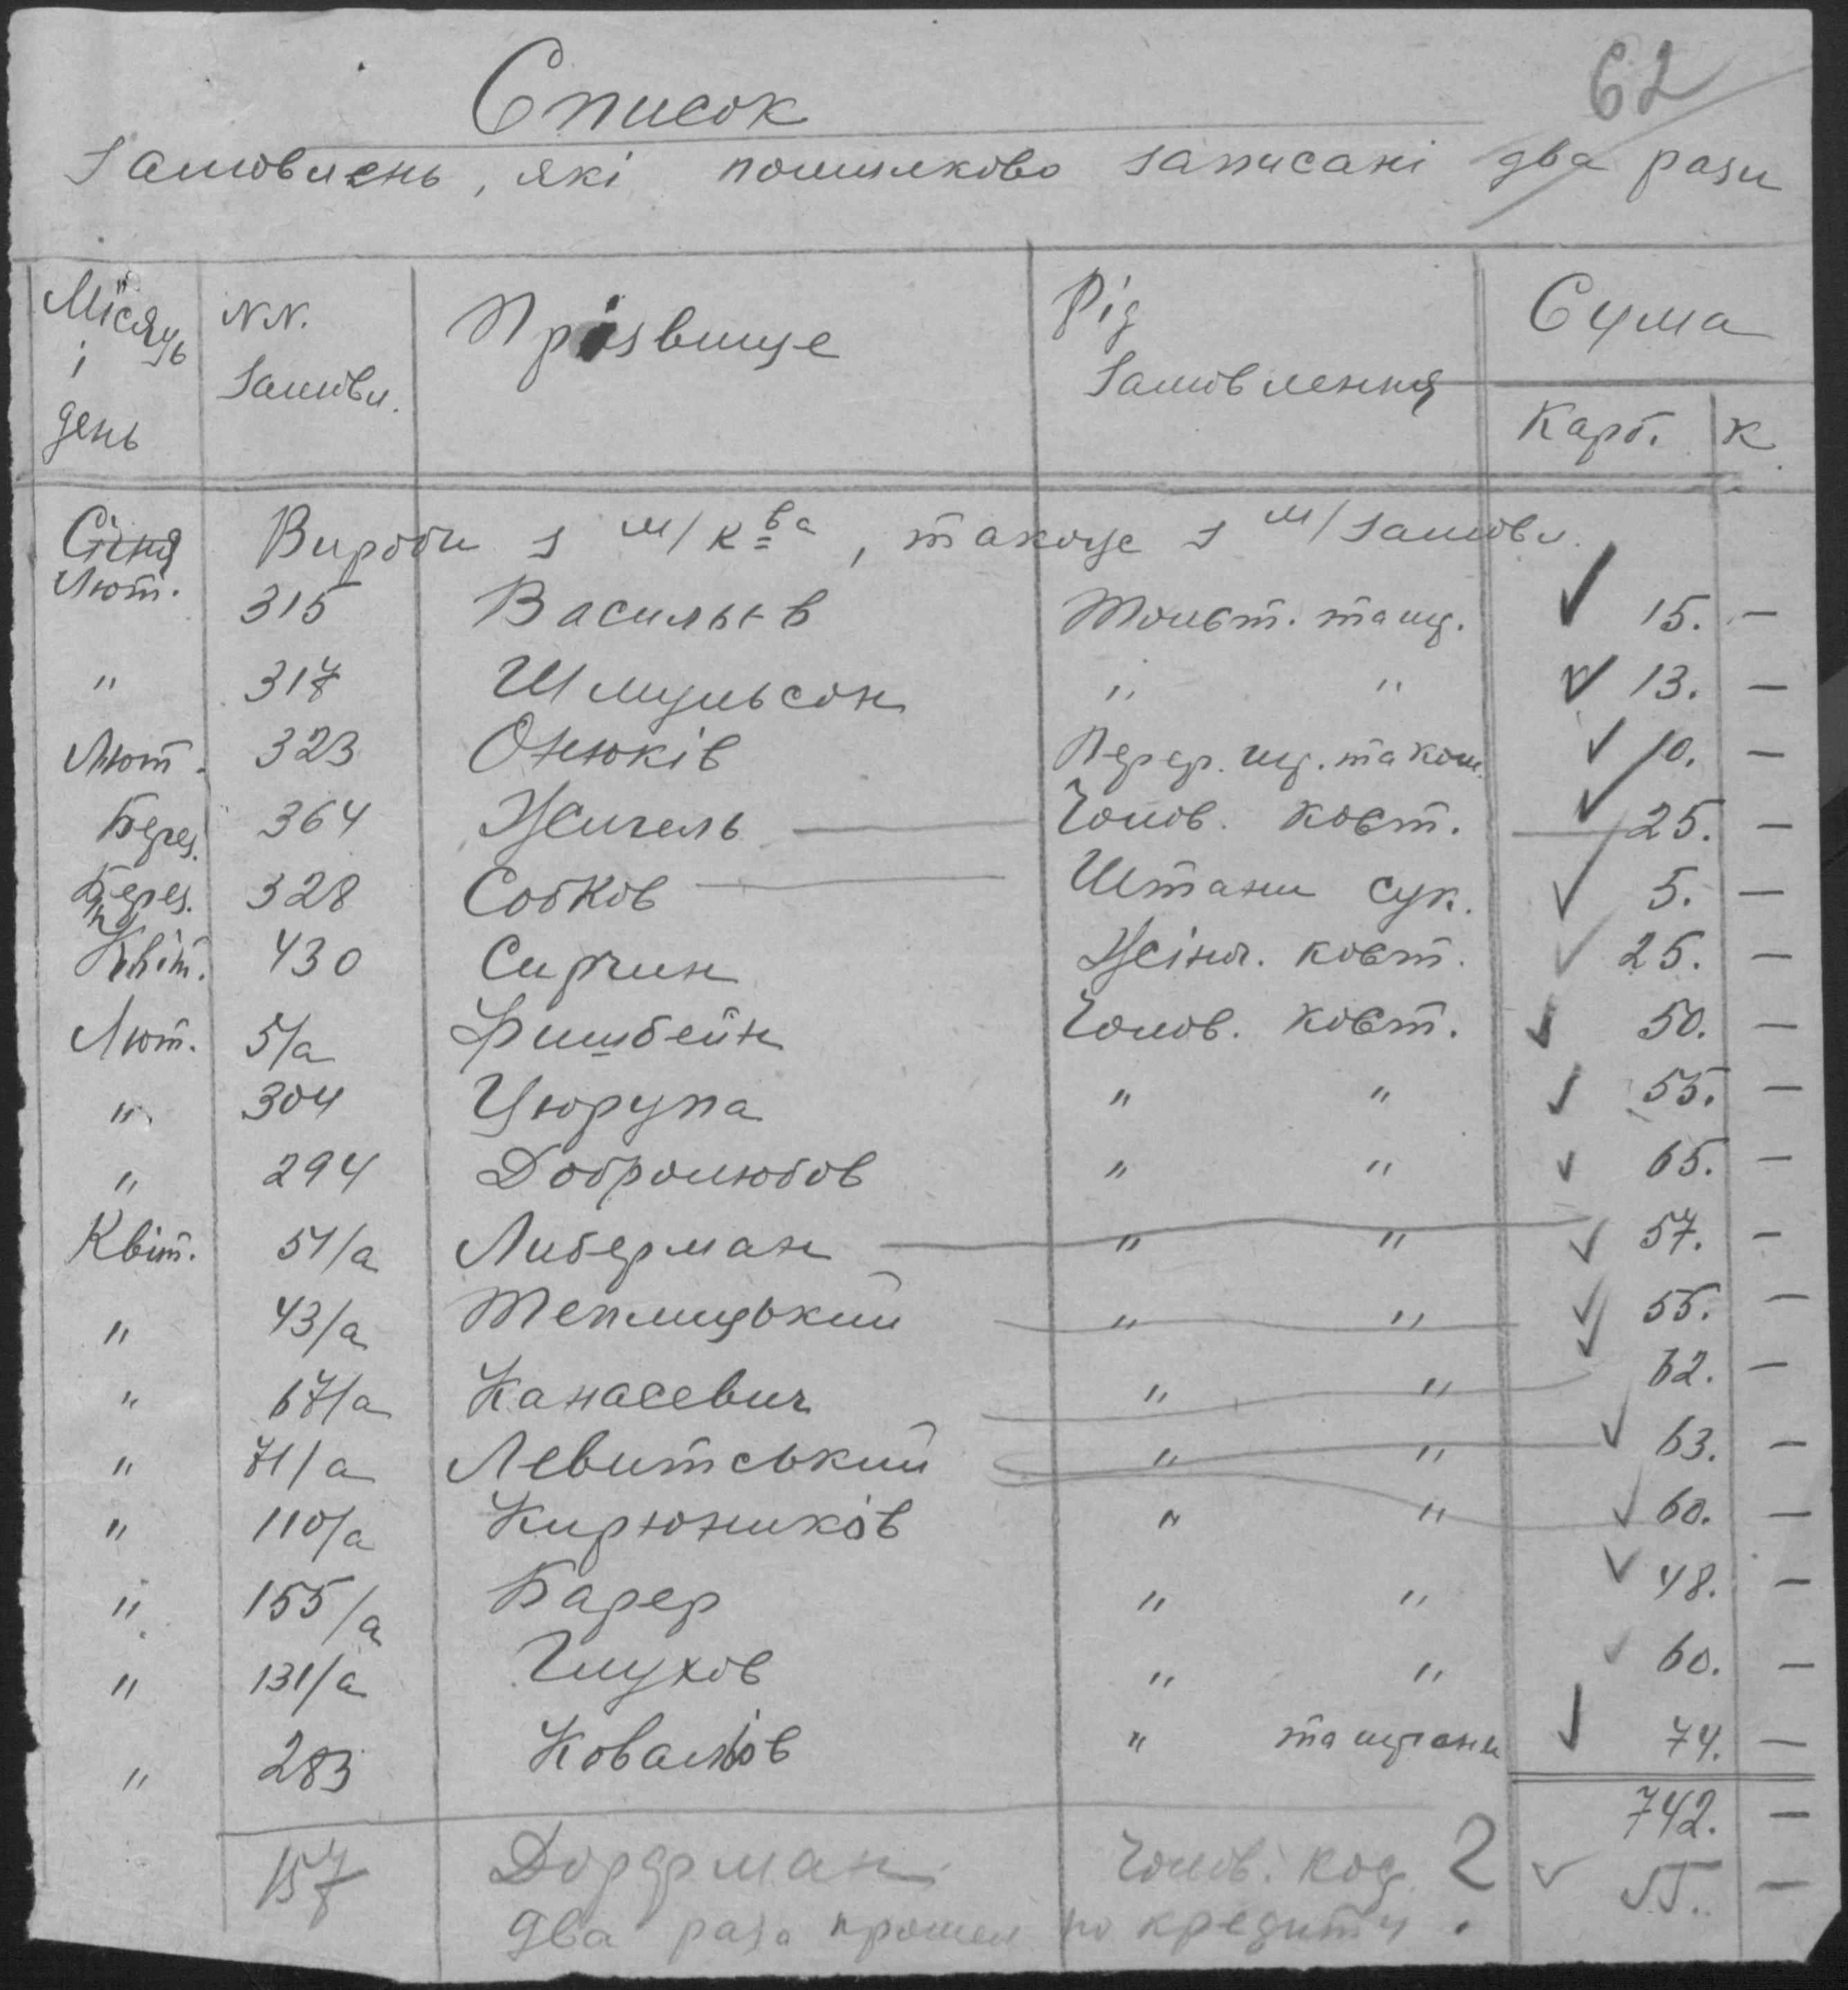 62
Список
Замовлень, які помилково записані два рази
Місяць і день | NN. Замовл. | Прізвище | Рід Замовлення | Сума Карб. | К.
Січня Вироби з м/к-ва, також з м/замовл.
Лют. 315 Васильєв Товст. та щ. 15. —
" 317 Шмульсон " " 13. —
Лют. 323 Онюків 10. —
Берез. 364 Жигель Чолов. кост. 25. —
Берез. 328 Собков Штани сук. 5. —
Квіт. 430 Сиркин Жіноч. кост. 25. —
Лют. 5/а Фишбейн Чолов. кост. 50. —
" 304 Цюрупа " " 55. —
" 294 Добролюбов " " 65. —
Квіт. 51/а Либерман " " 57. —
" 43/а Теплицький " " 55. —
" 67/а Канасевич " " 62. —
" 71/а Левитський " " 63. —
" 110/а Кирюников " " 60. —
" 155/а Барер " " 48. —
" 131/а Глухов " " 60. —
" 283 Ковальов " та штани 74. —
742. —
157 Дорфман Чолов. кос. 2 55. —
два раза прошел по кредиту.